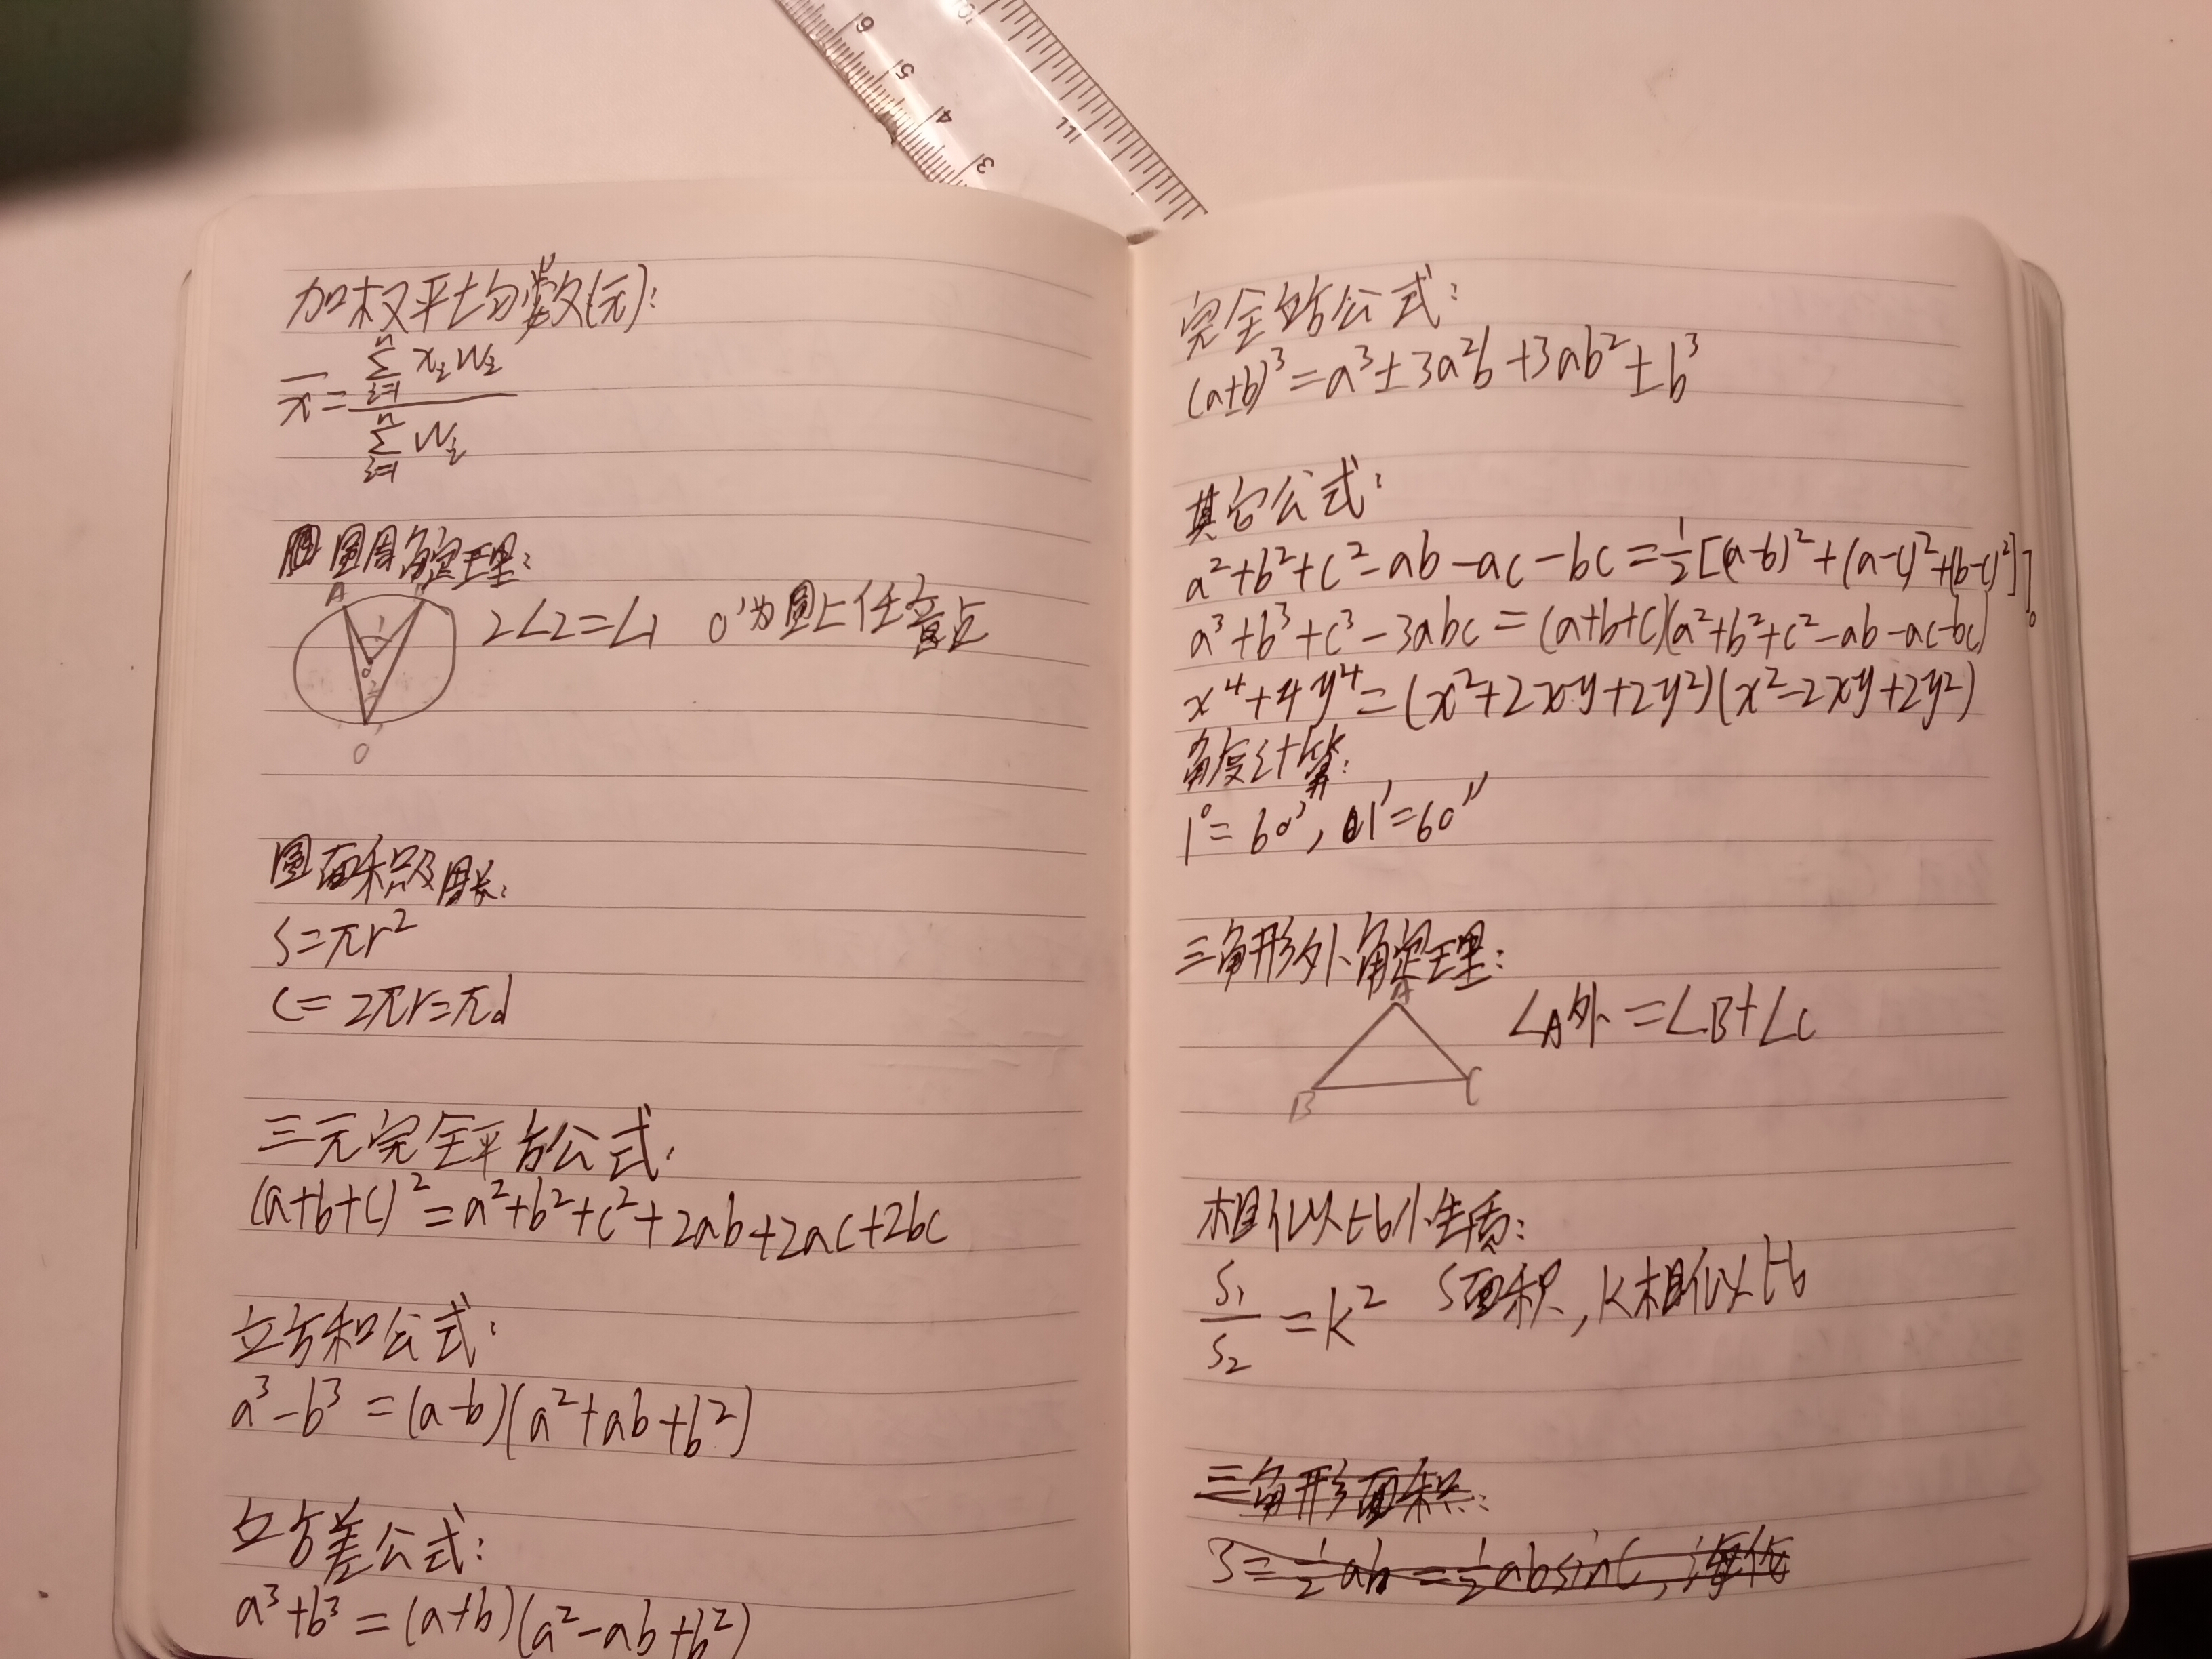 加权平均数(元):
x̄ = \frac{\sum_{i=1}^{n} x_i w_i}{\sum_{i=1}^{n} w_i}
圆周角定理:
A
1
O
2
O'
2∠2=∠1 O'为圆上任意点
圆面积及周长:
S=πr²
C=2πr=πd
三元完全平方公式:
(a+b+c)²=a²+b²+c²+2ab+2ac+2bc
立方和公式:
a³-b³=(a-b)(a²+ab+b²)
立方差公式:
a³+b³=(a+b)(a²-ab+b²)
完全立方公式:
(a±b)³=a³±3a²b+3ab²±b³
其它公式:
a²+b²+c²-ab-ac-bc=½[(a-b)²+(a-c)²+(b-c)²]
a³+b³+c³-3abc=(a+b+c)(a²+b²+c²-ab-ac-bc)
x⁴+4y⁴=(x²+2xy+2y²)(x²-2xy+2y²)
角度计算:
1°=60′, 1′=60″
三角形外角定理:
A
B C
∠A外=∠B+∠C
相似比性质:
\frac{S_1}{S_2}=k² S面积,k相似比
三角形面积:
S=½ab=½absinC,海伦
6 5 4 3
10 11